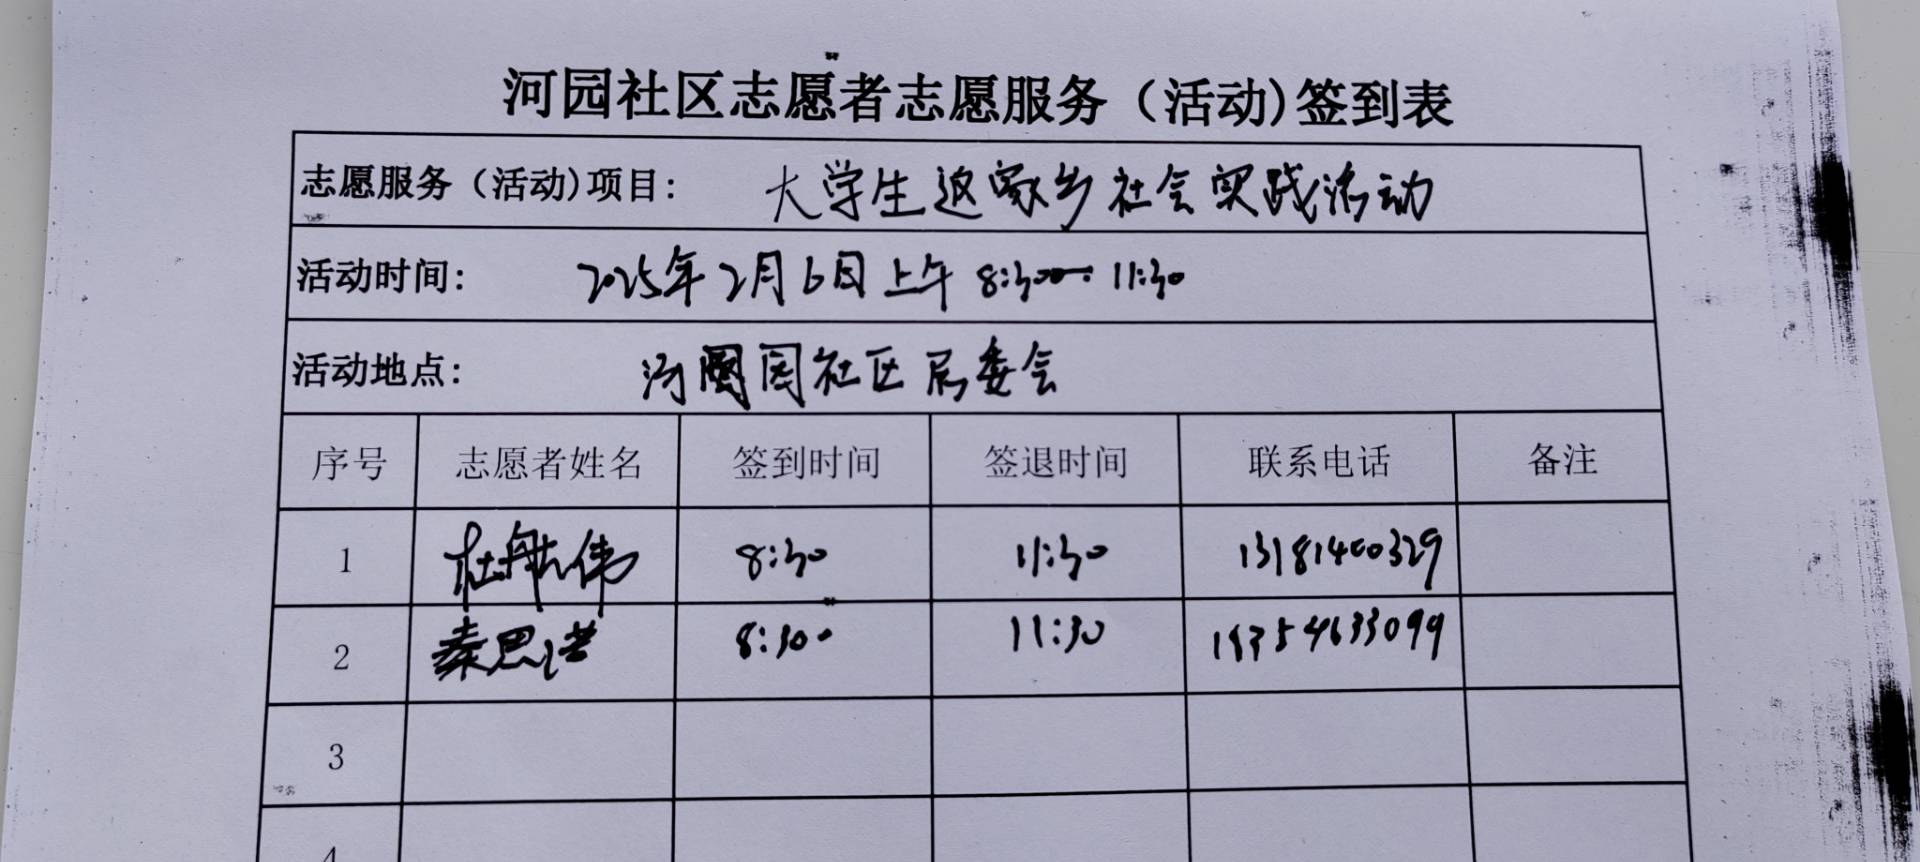 河园社区志愿者志愿服务（活动)签到表
志愿服务（活动)项目: 大学生返家乡社会实践活动
活动时间: 2025年2月6日上午 8:30 11:30
活动地点: 河园社区居委会
序号 志愿者姓名 签到时间 签退时间 联系电话 备注
1 杜航伟 8:30 11:30 13181400329
2 秦思诺 8:30 11:30
3
4